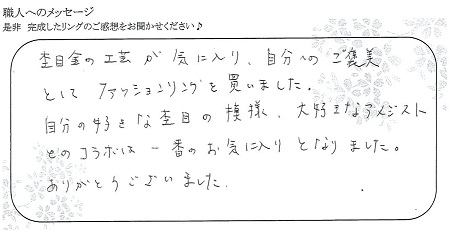 職人へのメッセージ
是非 完成したリングのご感想をお聞かせください♪
杢目金の工芸が気に入り、自分へのご褒美
として ファッションリングを買いました。
自分の好きな杢目の模様、大好きなアメジスト
とのコラボは一番のお気に入りとなりました。
ありがとうございました.